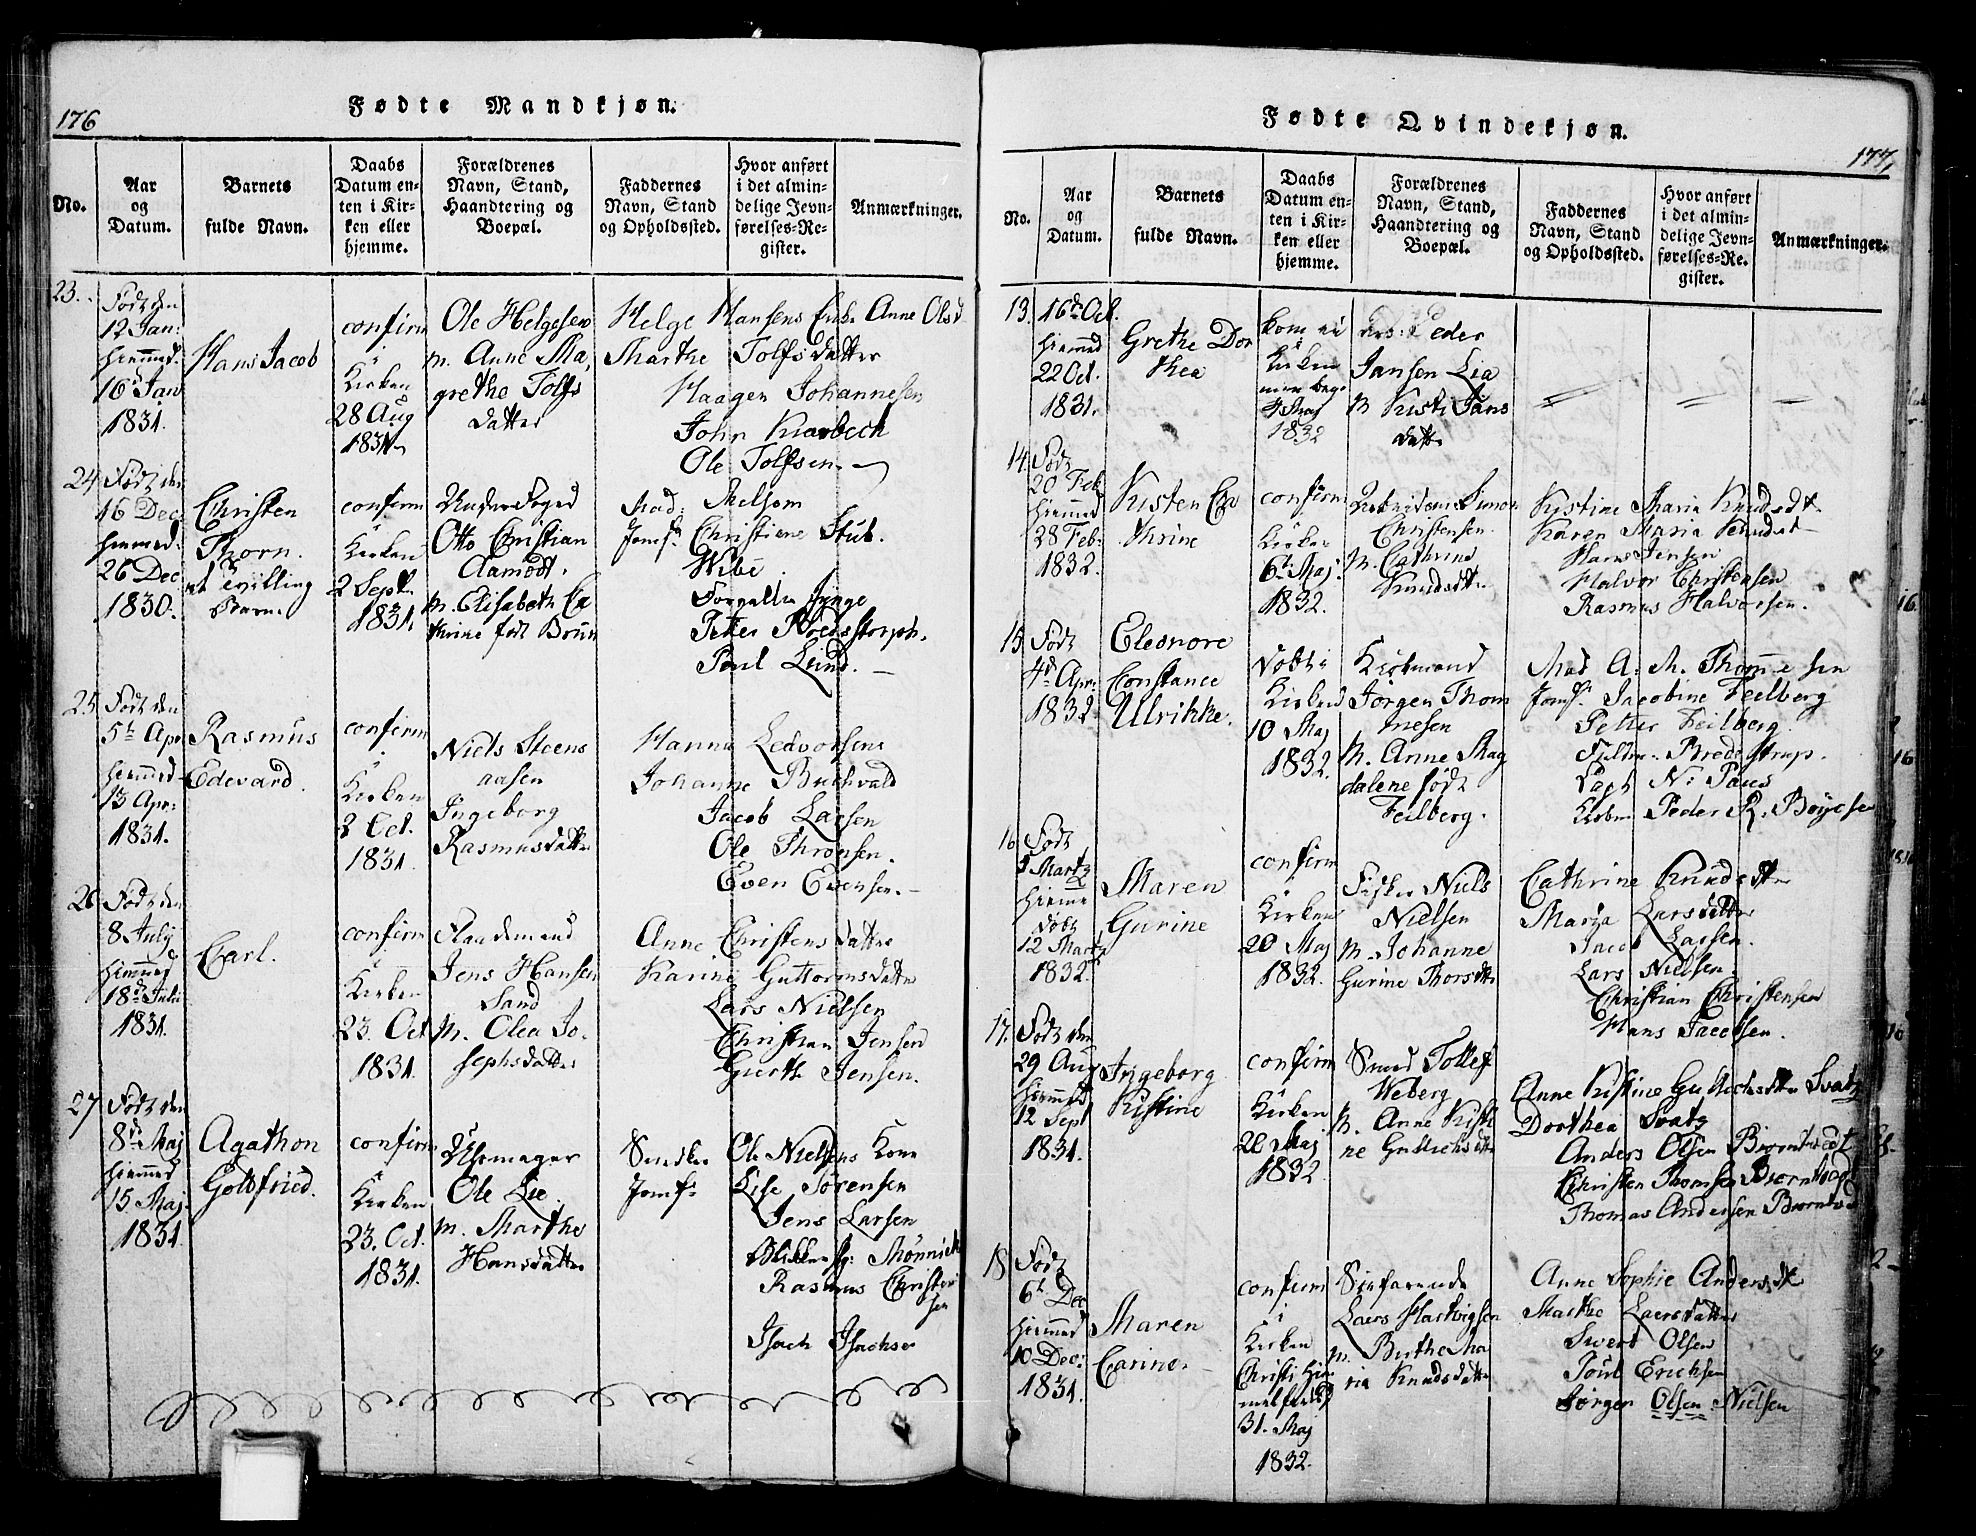 176
Fødte Mandkjøn.
No.
Aar
og
Datum.
Barnets
fulde Navn.
Daabs
Datum en-
ten i Kir-
ken eller
hjemme.
Forældrenes
Navn, Stand,
Haandtering og
Boepæl.
Faddernes
Navn, Stand
og Opholdssted.
Hvor anført
i det almin-
delige Jevn-
førelses-Re-
gister.
Anmærkninger.
23.
Født den
12 Jan:
hiemmed.
16 Jan
1831.
Hans Jacob
confirm
i
Kirken
28 Aug
1831
Ole Helgesen
m. Anne Ma,
grethe Tolfs
datter
Helge Hansens Enke Anne Olsd
Marthe Tolfsdatter
Haagen Johannesen
John Krabech
Ole Tolfsen.
24
Født den
16 Dec
hiemmed.
26 Dec
1830.
Christen
Thorn.
et tvilling
Barn.
confirm
i
Kirken
2 Sept.
1831.
Underfoged
Otto Christian
Aamodt.
m. Elisabeth Ca
thrine fød Bruun
Mad: Melsom
Jomf. Christiene Stub.
Wibe
Peter
Poul Lund.
25
Født den
5te Apr
hiemmed
13 Apr:
1831.
Rasmus
Edevard.
confirm
i
Kirken
2 Oct.
1831.
Niels Steens
aasen
Ingeborg
Rasmusdatter
Hanna Ledvorsens
Johanne Buchvald
Jacob Larsen
Ole Thronsen.
Even Evensen.
26
Født den
8 July
hiemmed
18de Juli
1831.
Carl.
confirm
i
Kirken
23. Oct
1831.
Jens Hansen
Sand
m. Olea Jo-
sephsdatter
Anne Christensdatter
Karine Guttormsdatter
Lars Nielsen
Christian Jensen
Gurth Jensen.
27
Født den
8de Maj
hiemmed
15 Maj.
1831
Agathon
Gotfried.
confirm
i
Kirken
23. Oct.
1831.
Uhrmager
Ole Lie.
m. Marthe
Hansdatter
Snedker Ole Nielsens Kone
Jomf. Lise Sørensen
Jens Larsen
Mønnich
Rasmus Christen
sen
Isach Isachsen
Fødte Qvindekjøn.
177,
No.
Aar
og
Datum.
Barnets
fulde Navn.
Daabs
Datum en-
ten i Kir-
ken eller
hjemme.
Forældrenes
Navn, Stand,
Haandtering og
Boepæl.
Faddernes
Navn, Stand
og Opholdssted.
Hvor anført
i det almin-
delige Jevn-
førelses-Re-
gister.
Anmærkninger.
13.
16de Oct.
hiemmed
22 Oct.
1831.
Grethe Dor
thea
kom ei
i
Kirken
1832
Peder
Jansen Lia
m Kirsti Jans
datter
14
Født
20 Feb
hiemmed
28 Feb.
1832.
Kirsten Ca
thrine
confirm
i
Kirken
6te Maj.
1832.
Christensen.
m. Cathrine
Knudsdtr.
Kirstine Maria Knudsdt.
Karen Maria Knudsdt
Hans Jensen
Halvor Christensen
Rasmus Halvorsen.
15
Født
4de Apr:
1832
Eleonore
Constance
Ulrikke.
døbt i
Kirken
10 Maj
1832.
Kiøbmand
Jørgen Thom
mesen
m. Anne Mag
dalene født
Feilberg.
Mad A. M. Thommesen
Jomf. Jacobine Feilberg
Petter Feilberg.
N. Paus
Peder R. Bøyesen
16
Født
5 Martz
hiemme
døbt
12 Martz
1832.
Maren
Gurine
confirm
i
Kirken
20 Maj
1832.
Fisker Niels
Nielsen
m. Johanne
Gurine Thorsdtr
Cathrine Knudsdtr
Maria Larsdatter
Jacob Larsen.
Lars Nielsen.
Christian Christensen
Hans Jacobsen.
17.
Født den
29 Aug
hiemmed
12 Sept
1831.
Ingeborg
Kirstine
confirm
i
Kirken
20 Maj
1832
Smed Tollef
Weberg
m. Anne Kirsti
ne Gullichsdtr
Anne Kirstine Gullichsdtr Svatz
Dorthea Svatz
Anders Olsen Biørntvedt
Christen Thomsen Biørntvedt
Thomas Andersen Biørntved
18
Født
6te Dec
hiemmed
10 Dec:
1831.
Maren
Carine.
confirm
i
Kirken
Christi Him
melfartsd
31. Maj
1832.
Søefarende
Laers Hartvigsen
m. Birthe Ma
ria Knudsdatter
Anne Sophie Andersdt
Marthe Laersdatter
Sivert Olsen
Poul Erichsen
Jørgen Olsen Nielsen